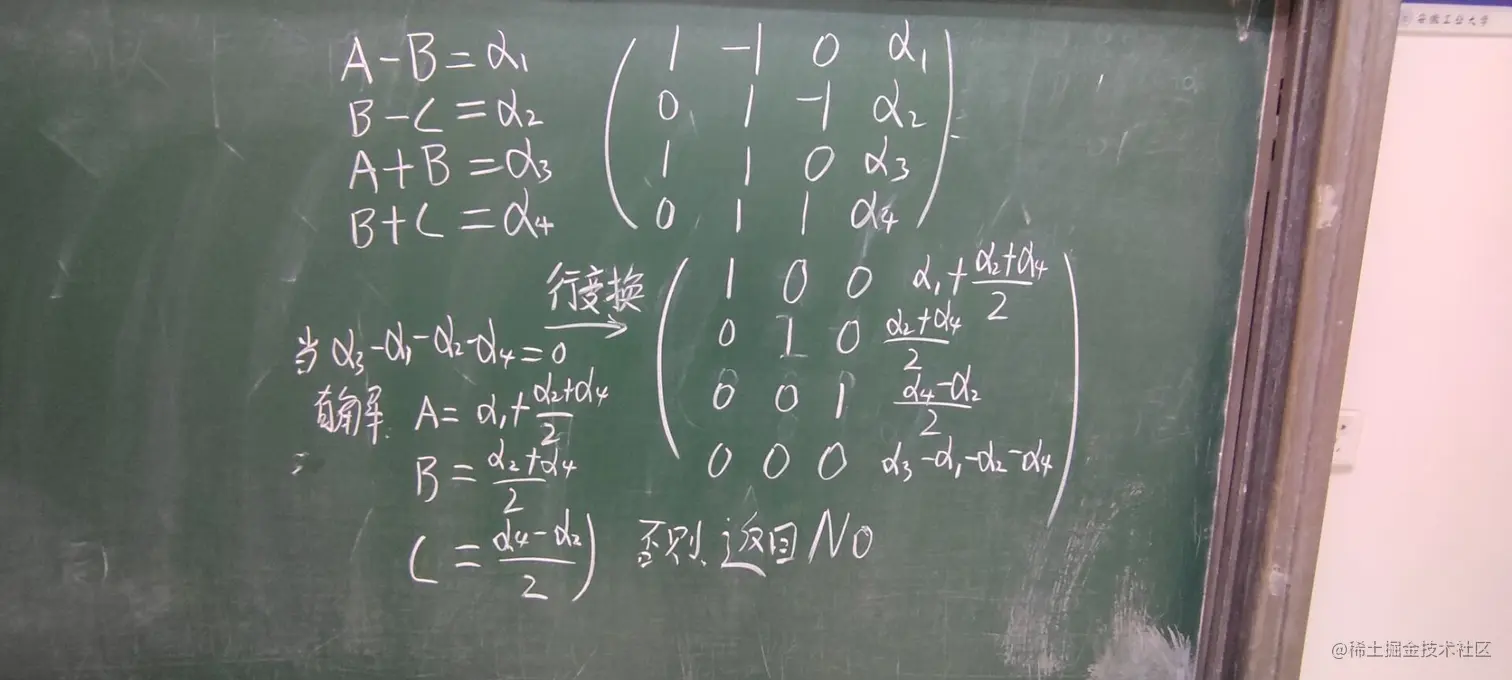 A-B=α₁
B-C=α₂
A+B=α₃
B+C=α₄
1 -1 0 α₁
0 1 -1 α₂
1 1 0 α₃
0 1 1 α₄
行变换
1 0 0 α₁+(α₂+α₄)/2
0 1 0 (α₂+α₄)/2
0 0 1 (α₄-α₂)/2
0 0 0 α₃-α₁-α₂-α₄
当α₃-α₁-α₂-α₄=0
有解
A=α₁+(α₂+α₄)/2
B=(α₂+α₄)/2
C=(α₄-α₂)/2)
否则返回No
安徽工业大学
@稀土掘金技术社区